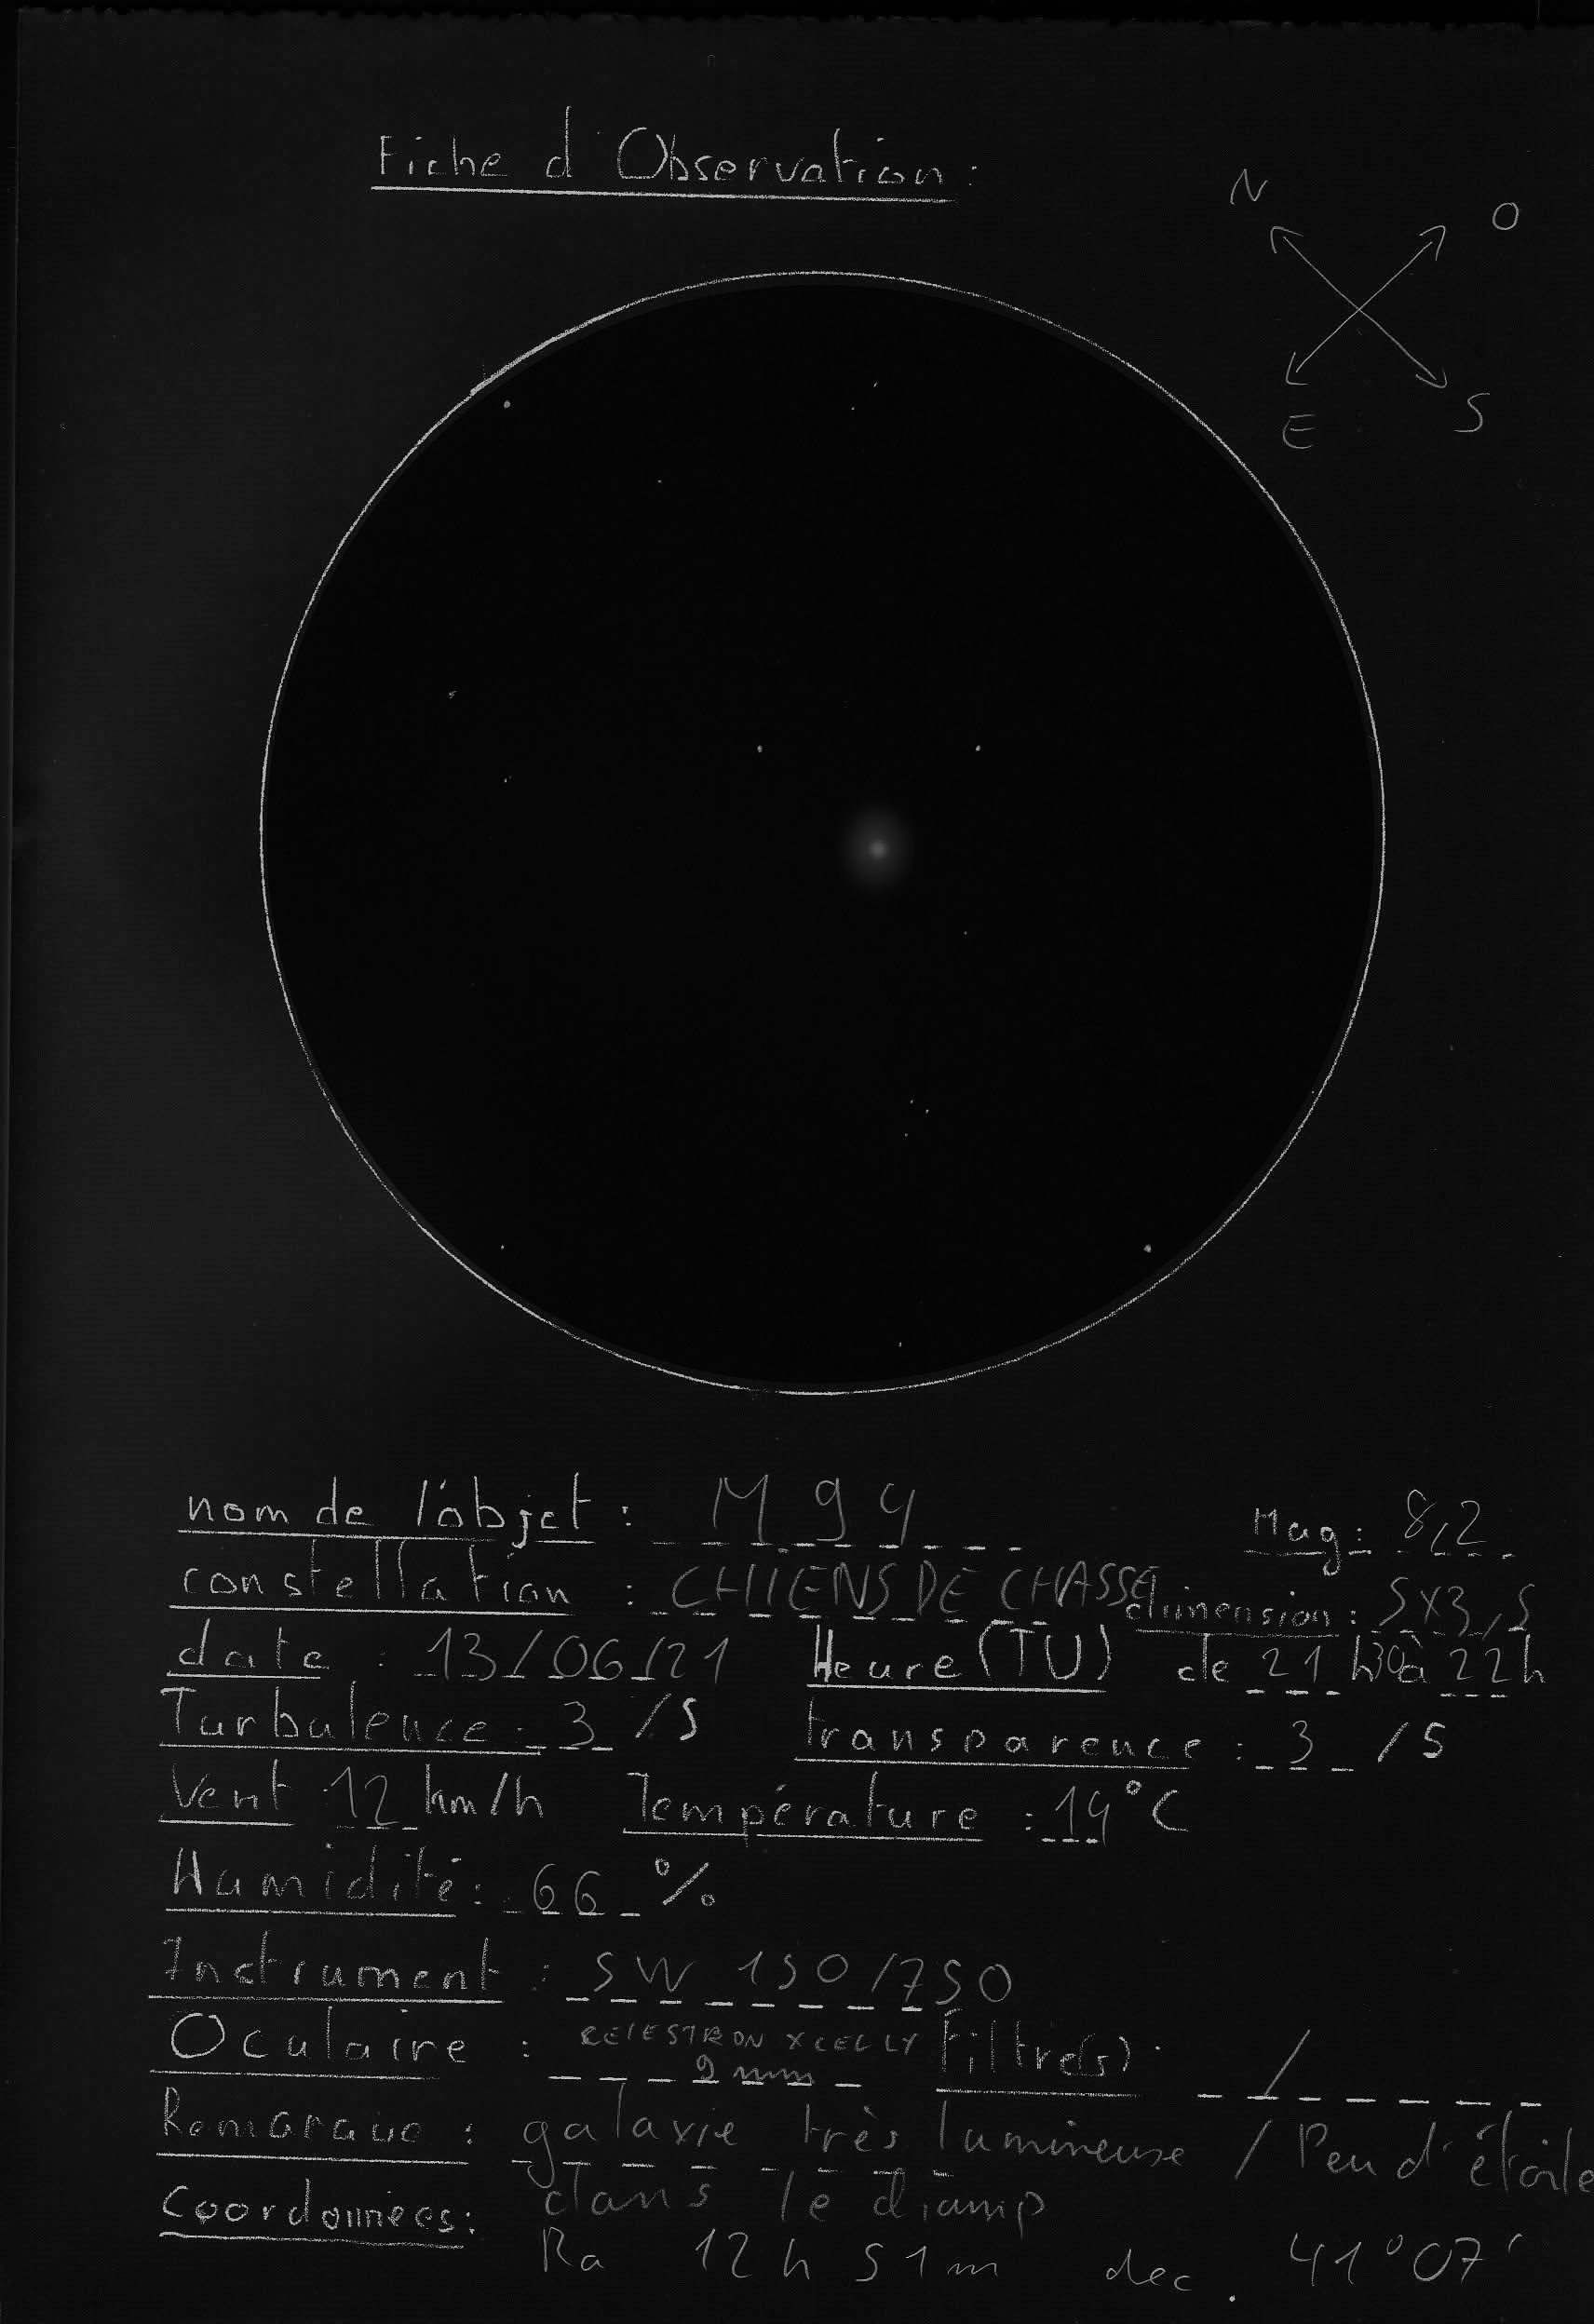 Fiche d'Observation:
N
O
E
S
nom de l'objet : M 94
Mag: 8,2
constellation : CHIENS DE CHASSE
dimension: 5x3,5
date : 13/06/21 Heure (TU) de 21 h30 à 22h
Turbulence: 3 /5 transparence : 3 /5
Vent 12 km/h Température : 19°C
Humidité: 66 %
Instrument : SW 150/750
Oculaire : CELESTRON X CEL LX Filtre(s) : /
9 mm
Remarque : galaxie très lumineuse / Peu d'étoile
dans le champ
Coordonnées:
Ra 12h 51m dec. 41°07'